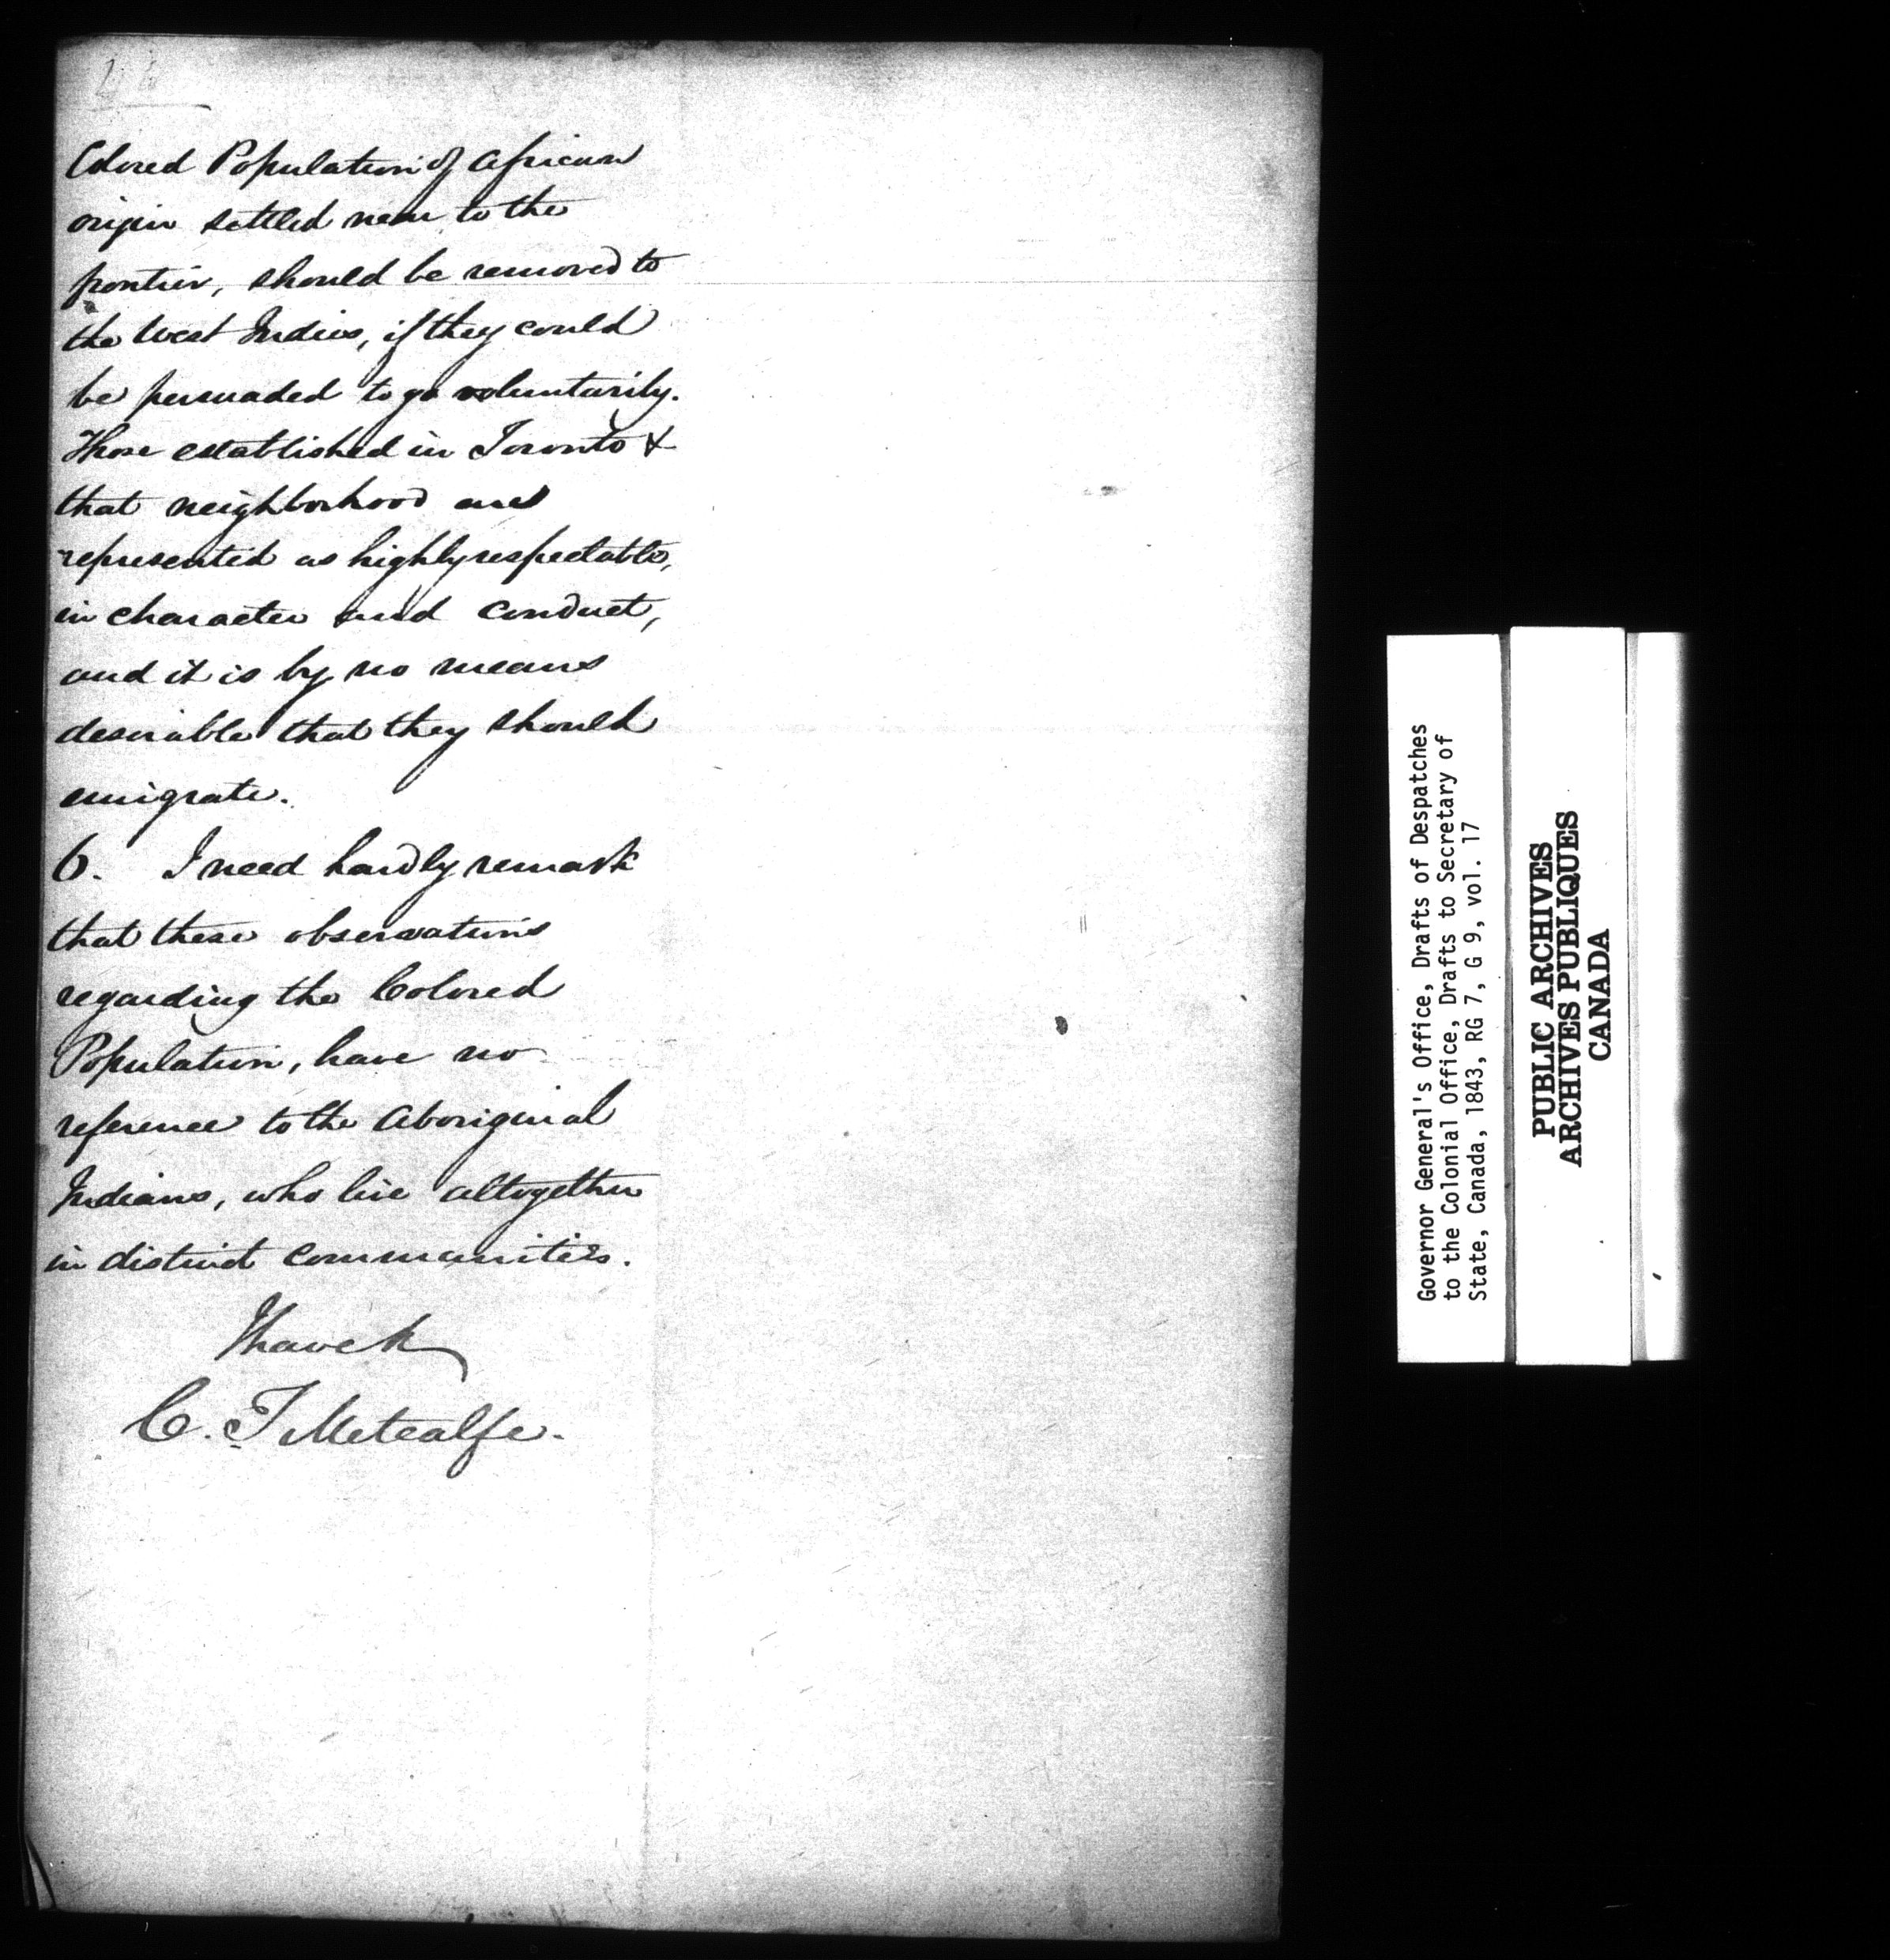 Colored Population of African
origin settled near to the
frontier, should be removed to
the West Indies, if they could
be persuaded to go voluntarily.
Those established in Toronto &
that neighborhood are
represented as highly respectable,
in character and conduct,
and it is by no means
desirable that they should
emigrate.
6. I need hardly remark
that these observations
regarding the Colored
Population, have no
reference to the Aboriginal
Indians, who live altogether
in distinct communities.
I have &
C. T. Metcalfe.
Governor General's Office, Drafts of Despatches
to the Colonial Office, Drafts to Secretary of
State, Canada, 1843, RG 7, G 9, vol. 17
PUBLIC ARCHIVES
ARCHIVES PUBLIQUES
CANADA